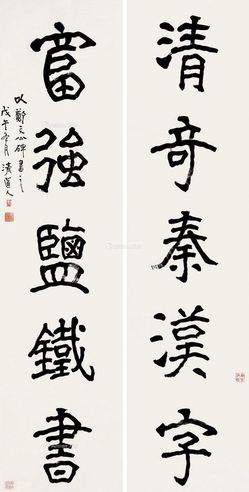 清奇秦漢字
富強鹽鐵書
以鄭文公碑書之
戊午冬月 清道人